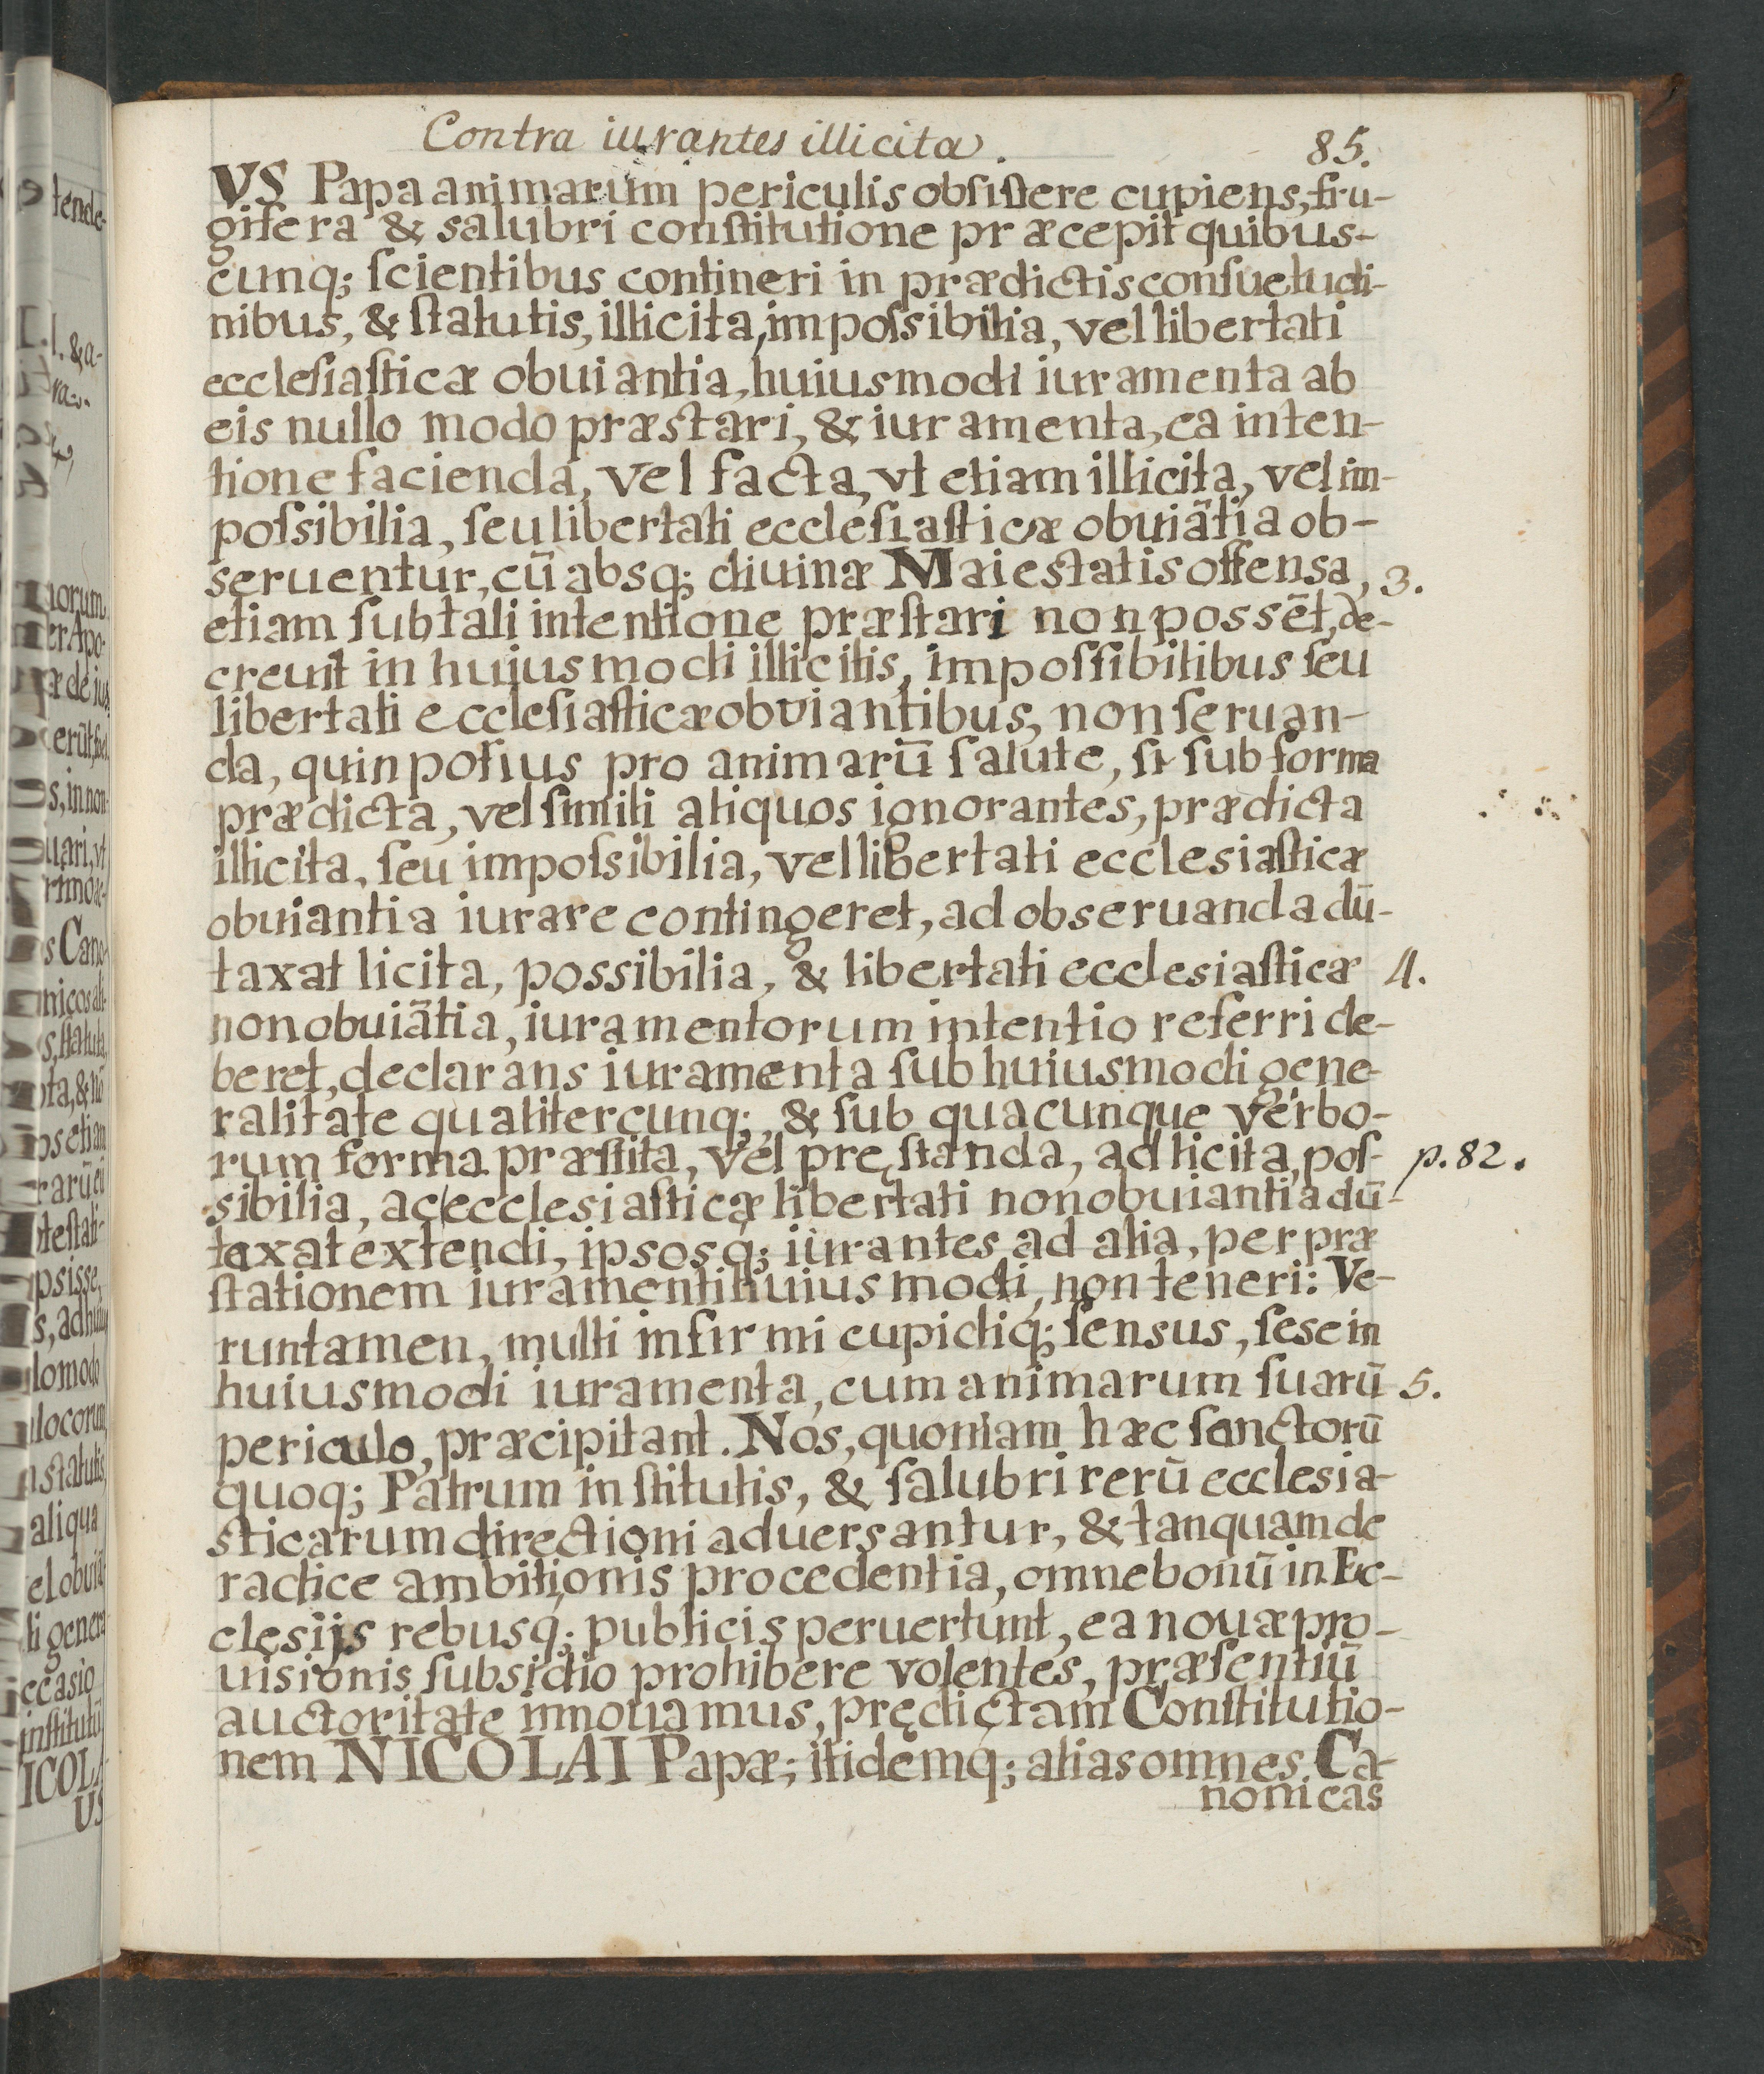 Contra iurantes illicita. 85.
VS Papa animarum periculis obſiſtere cupiens, fru-
gifera & salubri conſtitutione præcepit quibus-
cunq; ſcientibus contineri in prædictis conſuetudi-
nibus, & ſtatutis, illicita, impoſsibilia, vel libertati
eccleſiaſticæ obuiantia, huiusmodi iuramenta ab
eis nullo modo præstari, & iuramenta, ea inten-
tione facienda, vel facta, vt etiam illicita, vel im-
poſsibilia, ſeu libertati eccleſiaſticæ obuiãtia ob-
seruentur, cũ absq; diuinæ Maiestatis offensa, 3.
etiam ſub tali intentione præſtari non possẽt, de-
creuit in huiusmodi illicitis, impoſſibilibus ſeu
libertati eccleſiaſticæ obviantibus, non ſeruan-
da, quin potius pro animarũ ſalute, ſi ſub forma
prædicta, vel ſimili aliquos ignorantes, prædicta
illicita, ſeu impoſsibilia, vel libertati ecclesiaſticæ
obuiantia iurare contingeret, ad obseruanda dũ-
taxat licita, possibilia, & libertati ecclesiaſticæ 4.
non obuiãtia, iuramentorum intentio referri de-
beret, declarans iuramenta ſub huiusmodi gene-
ralitate qualitercunq;, & ſub quacunque verbo-
rum forma præſtita, vel pręſtanda, ad licita, poſ- p. 82.
sibilia, ac ecclesiaſticæ libertati non obuiantia dũ-
taxat extendi, ipsosq; iurantes ad alia, per præ
ſtationem iuramenti huiusmodi, non teneri: Ve-
runtamen, multi infirmi cupidiq; ſensus, ſese in
huiusmodi iuramenta, cum animarum ſuarũ 5.
periculo, præcipitant. Nos, quoniam hæc ſanctorũ
quoq; Patrum inſtitutis, & ſalubri rerũ ecclesia-
sticarum directioni aduersantur, & tanquam de
radice ambitionis procedentia, omne bonũ in Ec-
clesijs rebusq; publicis peruertunt, ea nouæ pro-
uisionis ſubsidio prohibere volentes, præſentiũ
auctoritate innouamus, prędictam Conſtitutio-
nem NICOLAI Papæ; itidemq; alias omnes Ca-
nonicas